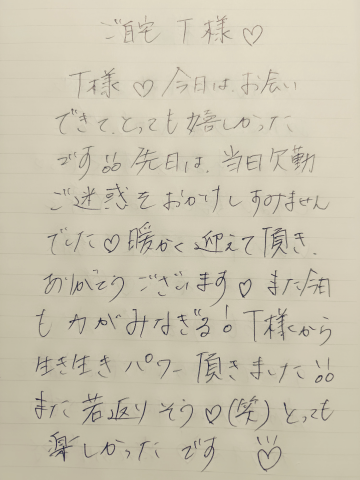 ご自宅 T様♡
T様♡今日は、お会い
できて、とっても嬉しかった
です!!先日は、当日欠勤
ご迷惑をおかけしすみません
でした♡暖かく迎えて頂き、
ありがとうございます♡また今日
も力がみなぎる!T様から
生き生きパワー頂きました!!
また若返りそう♡(笑)とっても
楽しかったです♡